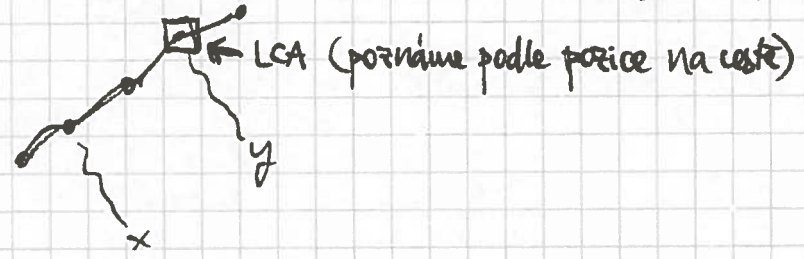 ← LCA (poznáme podle pozice na cestě)
y
x